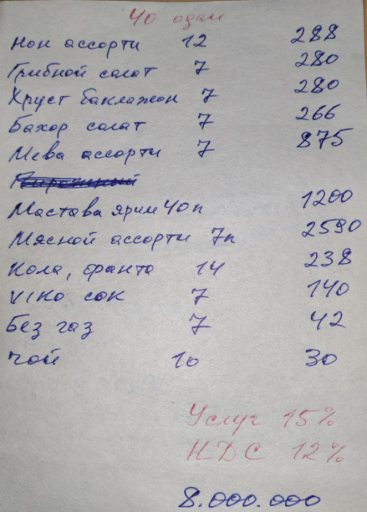 40 одам
Нон ассорти 12 288
Грибной салат 7 280
Хруст баклажон 7 280
Бахор салат 7 266
Мева ассорти 7 875
Мастава ярим 40п 1200
Мясной ассорти 7п 2590
Кола, фанта 14 238
Viko сок 7 140
Без газ 7 42
Чой 10 30
Услуг 15%
НДС 12%
8.000.000